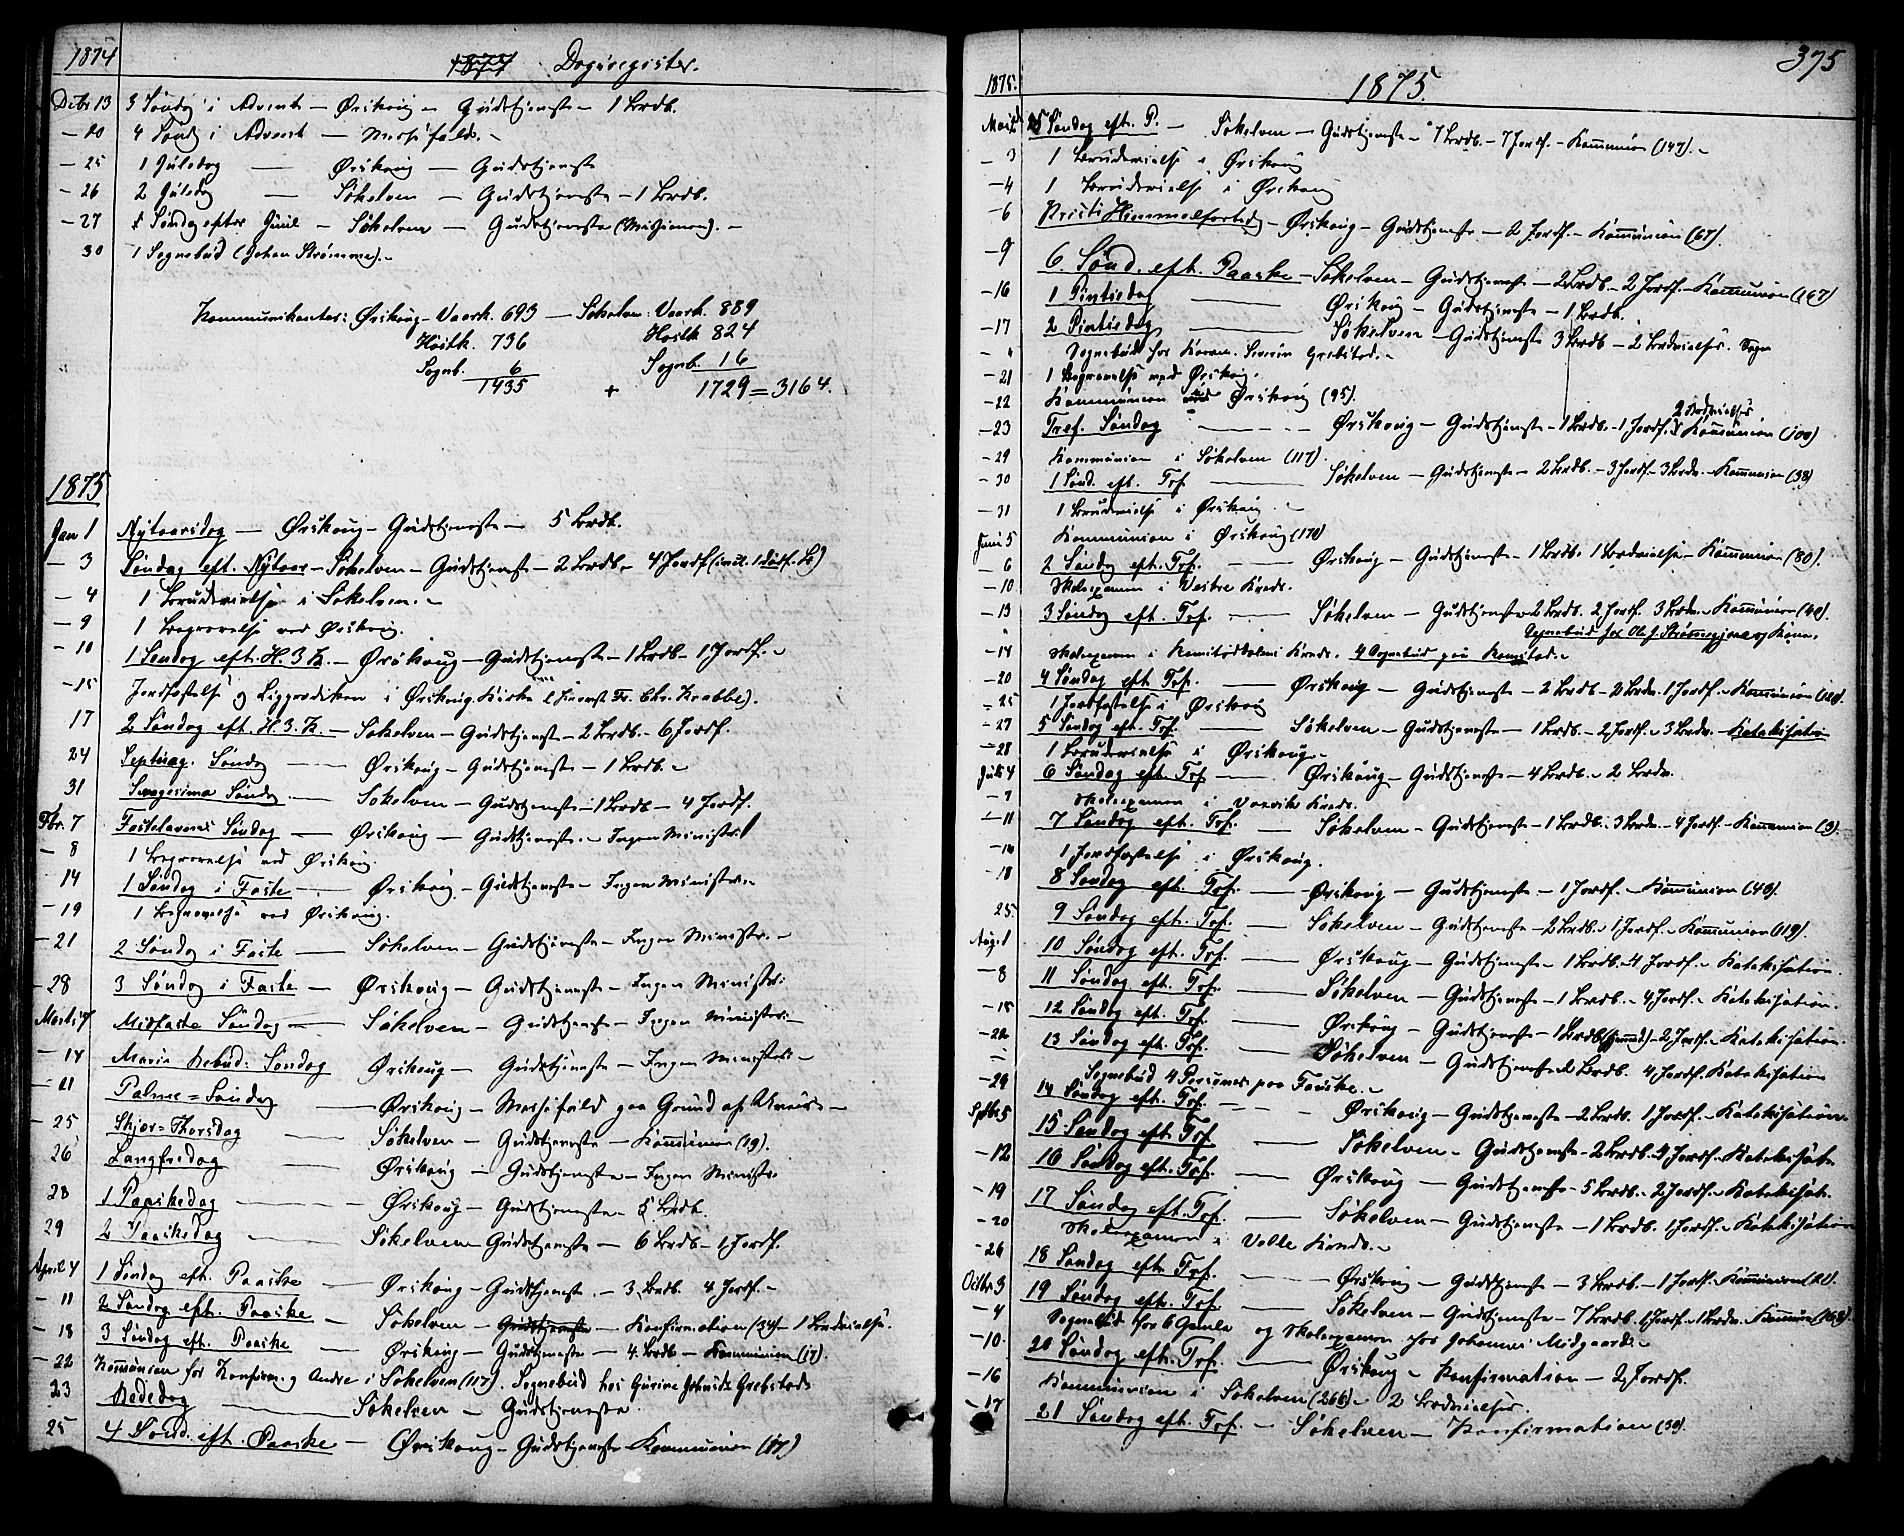 1874
Dagsregister.
Decbr 13 3 Søndag i Advent – Ørskoug – Gudstjeneste – 1 Brdb.
– 20 4 Sønd. i Advent – Messefald. –
– 25 1 Juledag – Ørskoug – Gudstjeneste
– 26 2 Juledag – Søkelven – Gudstjeneste – 1 Brdb.
– 27 Søndag efter Juul – Søkelven – Gudstjeneste (Missionen). –
30 1 Sognebud (Johan Strømme). –
Kommunikanter: Ørskoug – Vaark. 693 – Søkelven: Vaark. 889
Høstk. 736 Høstk 824
Sognb. 6 Sognb. 16
1435 + 1729 = 3164.
1875
Jan 1 Nytaarsdag – Ørskoug – Gudstjeneste – 5 Brdb.
– 3 Søndag eft. Nytaar – Søkelven – Gudstjeneste – 2 Brdb. – 4 Jordf. (incl. 1 dødf. B)
– 4 1 Brudevielse i Søkelven. –
– 9 1 Begravelse ved Ørskoug.
– 10 1 Søndag eft. H. 3 K. – Ørskoug – Gudstjeneste – 1 Brdb – 1 Jordf. –
– 15 Jordfæstelse og Ligprædiken i Ørskoug Kirke Fr. Chr. Krabbe).
17 2 Søndag eft. H. 3. K. – Søkelven – Gudstjeneste – 2 Brdb. – 6 Jordf.
24 Septuag. Søndag – Ørskoug – Gudstjeneste – 1 Brdb. –
31 Sexagesima Søndag – Søkelven – Gudstjeneste – 1 Brdb – 4 Jordf.
Fbr. 7 Fastelavns Søndag – Ørskoug – Gudstjeneste. – Ingen Ministr.
– 8 1 Begravelse ved Ørskoug.
– 14 1 Søndag i Faste – Ørskoug – Gudstjeneste – Ingen Ministr. –
– 19 1 Begravelse ved Ørskoug.
– 21 2 Søndag i Faste – Søkelven – Gudstjeneste – Ingen Ministr. –
– 28 3 Søndag i Faste – Ørskoug – Gudstjeneste – Ingen Ministr.
Marts 7 Midfaste Søndag – Søkelven – Gudstjeneste – Ingen Ministr. –
– 14 Maria Bebud: Søndag Ørskoug – Gudstjeneste – Ingen Ministr. –
– 21 Palme = Søndag – Ørskoug – Messefald paa Grund af –
– 25 Skjær = Thorsdag – Søkelven – Gudstjeneste – Kommunion (19).
26 Langfredag – Ørskoug – Gudstjeneste – Ingen Ministr.
28 1 Paaskedag – Ørskoug – Gudstjeneste – 5 Brdb.
29 2 Paaskedag – Søkelven – Gudstjeneste – 6 Brdb – 1 Jordf.
April 4 1 Søndag eft. Paaske – Ørskoug – Gudstjeneste. – 3 Brdb. 4 Jordf. –
– 11 2 Søndag eft. Paaske – Søkelven – Gudstjeneste – Konfirmation (34) – 1 Brudvielse.
– 18 3 Søndag eft. Paaske – Ørskoug – Gudstjeneste – 4 Brdb. – Kommunion (17).
– 22 Kommunion for Konfirm. og Andre i Søkelven (117). Sognebud hos Grebstad
23 Bededag – Søkelven – Gudstjeneste.
25 4 Sønd. eft. Paaske – Ørskoug – Gudstjeneste Kommunion (17)
375
1875. 1875.
Mai 2 5 Søndag eft. P. – Søkelven – Gudstjeneste – 7 Brdb. – 7 Jordf. – Kommunion (147). –
– 3 1 Brudevielse i Ørskoug
– 4 1 Brudevielse i Ørskoug
– 6 Kristi Himmelfartsd. – Ørskoug – Gudstjeneste – 2 Jordf. – Kommunion (67).
– 9 6. Sønd. eft. Paaske – Søkelven – Gudstjeneste – 2 Brdb – 2 Jordf. – Kommunion (147)
– 16 1 Pintsedag – Ørskoug – Gudstjeneste – 1 Brdb.
– 17 2 Pintsedag – Søkelven – Gudstjeneste 3 Brdb – 2 Brdvielser. Sogn
Sognebud for Severin Grebstad. –
– 21 1 Begravelse ved Ørskoug.
– 22 Kommunion ved Ørskoug (95).
– 23 Tref. Søndag – Ørskoug – Gudstjeneste – 1 Brdb. – 1 Jordf. 2 Brdvielser Kommunion (100)
– 29 Kommunion i Søkelven (117)
– 30 1 Sønd. eft. Trf. – Søkelven – Gudstjeneste – 2 Brdb. – 3 Jordf. – 3 Brdv. – Kommunion (38)
– 31 1 Brudevielse i Ørskoug. –
Juni 5 Kommunion i Ørskoug (170)
– 6 2 Søndag eft. Trf. – Ørskoug – Gudstjeneste – 1 Brdb. 1 Brdvielse – Kommunion (80).
– 10 Skoleexamen i Vestre Kreds.
– 13 3 Søndag eft. Trf. – Søkelven – Gudstjeneste – 2 Brdb. 2 Jordf. 3 Brdv. – Kommunion (40).
Sognebud for Ole J. Strømmegjære og Kone.
– 14 Skoleexamen i Kreds. 4 Sognebud paa Ramstad. –
– 20 4 Søndag eft Trf. – Ørskoug – Gudstjeneste – 2 Brdb – 2 Brdv. 1 Jordf. – Kommunion (120).
– 25 1 Jordfæstelse i Ørskoug
– 27 5 Søndag eft. Trf. – Søkelven – Gudstjeneste – 1 Brdb. – 2 Jordf. – 3 Brdv. – Katekisation
– 28 1 Brudevielse i Ørskoug. –
Juli 4 6 Søndag eft. Trf – Ørskoug – Gudstjeneste – 4 Brdb. – 2 Brdv.
– 7 Skoleexamen i Kreds.
– 11 7 Søndag eft. Trf. – Søkelven – Gudstjeneste – 1 Brdb. – 3 Brdv. – 4 Jordf. – Kommunion (9).
1 Jordfæstelse i Ørskoug.
– 18 8 Søndag eft. Trf. – Ørskoug – Gudstjeneste – 1 Jordf. – Kommunion (40).
25. 9 Søndag eft. Trf. – Søkelven – Gudstjeneste – 2 Brdb. – 1 Jordf. – Kommunion (119).
Aug. 1 10 Søndag eft. Trf. – Ørskoug – Gudstjeneste – 1 Brdb. – 4 Jordf. – Katekisation.
– 8 11 Søndag eft. Trf. – Søkelven – Gudstjeneste – 1 Brdb. – 4 Jordf. – Katekisation.
– 15 12 Søndag eft. Trf. – Ørskoug – Gudstjeneste – 1 Brdb. – 2 Jordf. – Katekisation.
– 22 13 Søndag eft. Trf. – Søkelven – Gudstjeneste 2 Brdb. 4 Jordf. Katekisation
Sognebud 4 Personer paa Fauske. –
– 29 14 Søndag eft. Trf. – Ørskoug – Gudstjeneste – 2 Brdb. 1 Jordf. – Katekisation.
Sptbr 5 15 Søndag eft. Trf – Søkelven – Gudstjeneste – 2 Brdb. 4 Jordf. – Katekisat.
– 12 16 Søndag eft. Trf. – Ørskoug – Gudstjeneste – 5 Brdb. – 2 Jordf. – Katekisat.
– 19 17 Søndag eft. Trf. – Søkelven – Gudstjeneste – 1 Brdb. 1 Jordf. – Katekisation
– 20 Skoleexamen i Velle Kreds. –
– 26 18 Søndag eft. Trf. – Ørskoug – Gudstjeneste – 3 Brdb. – 1 Jordf. – Kommunion (21).
Octbr. 3 19 Søndag eft. Trf. – Søkelven – Gudstjeneste – 7 Brdb. 1 Jordf. – 1 Brdv. – Kommunion (103).
– 4 Sognebud for 6 Gamle og Skoleexamen hos Johannes Midgaard. –
– 10. 20 Søndag eft. Trf. – Ørskoug – Konfirmation – 2 Jordf.
– 16 Kommunion i Søkelven (266) – 2 Brdvielser.
– 17 21 Søndag eft. Trf. – Søkelven – Konfirmation (50).